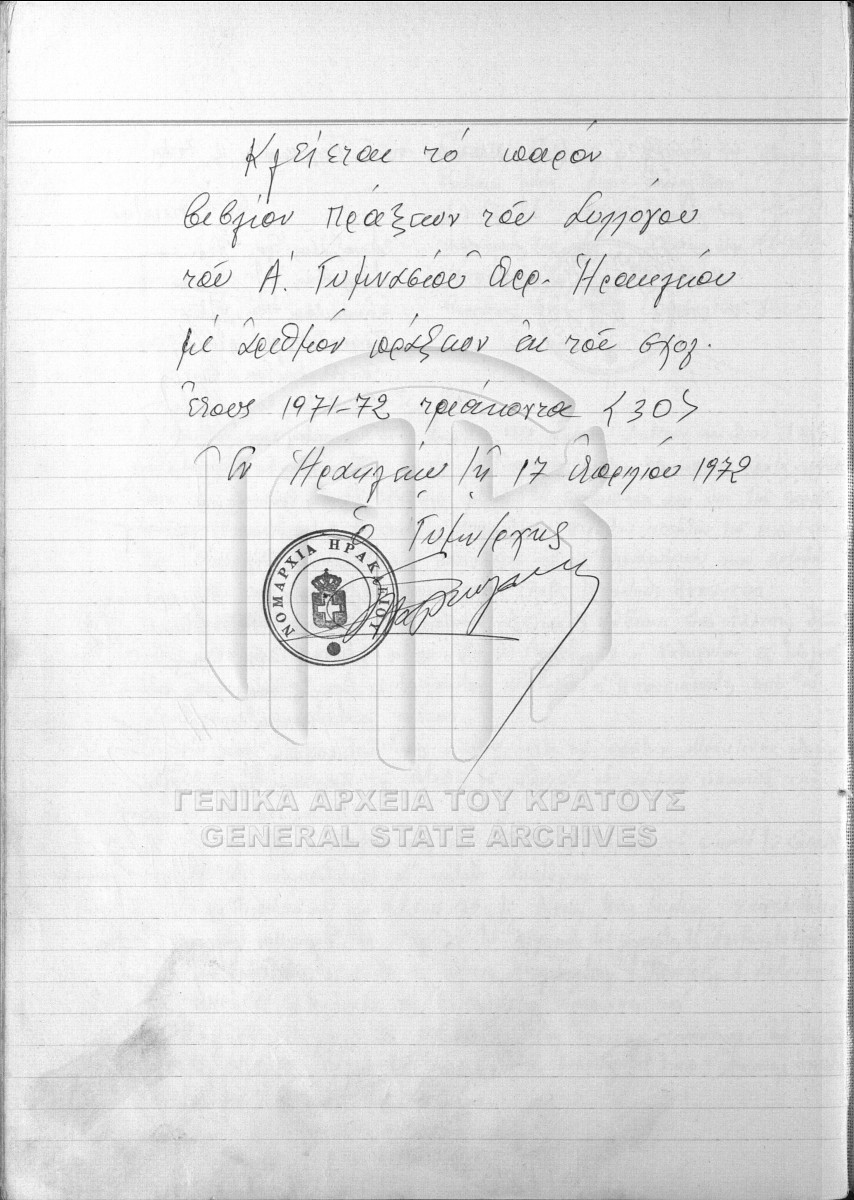 Κλείεται τό παρόν
βιβλίον πράξεων τοῦ Συλλόγου
τοῦ Α΄. Γυμνασίου Ἀρρ. Ἡρακλείου
μέ ἀριθμόν πράξεων ἐκ τοῦ σχολ.
ἔτους 1971-72 τριάκοντα <30>
Ἐν Ἡρακλείῳ τῇ 17 Ἀπριλίου 1972
Ὁ Γυμν/ρχης
ΝΟΜΑΡΧΙΑ ΗΡΑΚΛΕΙΟΥ
ΓΕΝΙΚΑ ΑΡΧΕΙΑ ΤΟΥ ΚΡΑΤΟΥΣ
GENERAL STATE ARCHIVES